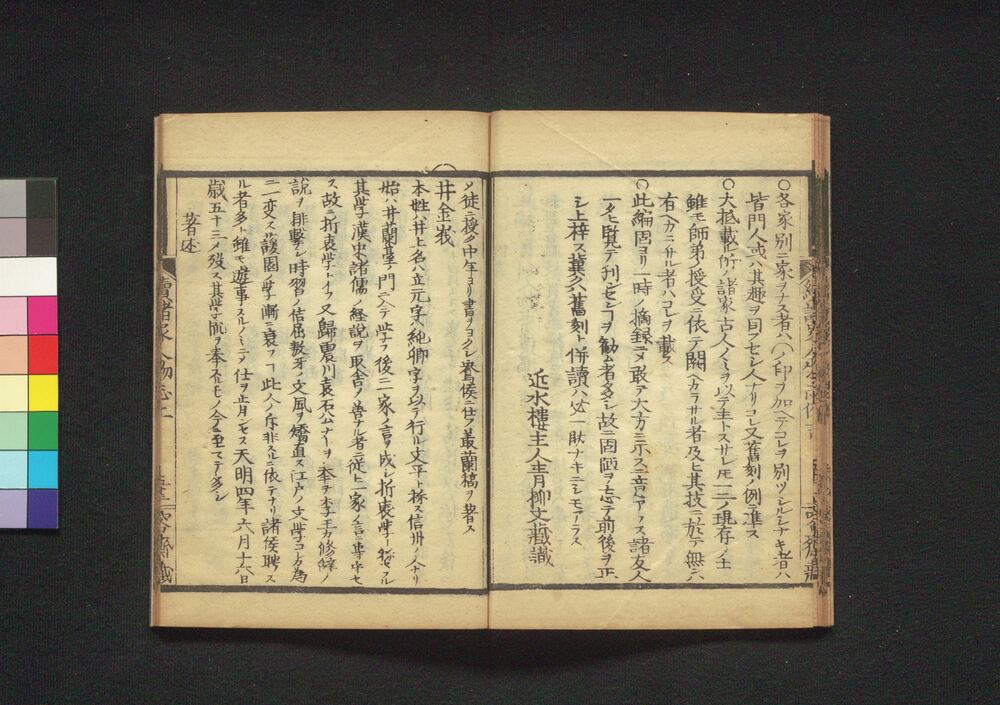 ○各家別ニ一家ヲナス者ハ(ノ印ヲ加ヘテコレヲ別ツシルシナキ者ハ
皆門人或ハ其趣ヲ同フセシ人ナリコレ又舊刻ノ例ニ準ス
○大抵載ル所ノ諸家古人ノミヲ以テ主トスサレモ一二ノ現存ノ士
雖モ師弟ノ授受ニ依テ闕ヘカラサル者及ヒ其技ニ於テ無ンハ
有ヘカラサル者ハコレヲ載ス
○此編固ヨリ一時ノ摘録ニメ敢テ大方ニ示スニ意アラス諸友人
一タヒ覽テ刊センヿヲ勧ム者多シ故ニ固陋ヲ忘テ前後ヲ正
シ上梓ス冀クハ舊刻ト併讀ハ必一助ナキニシモアラス
近水樓主人青柳文藏識
ノ徒ニ授ク中年ヨリ書ヲヨクシ 侯ニ仕フ叢蘭稿ヲ著ス
井金峩
本姓ハ井上名ハ立元字ハ純卿字ヲ以テ行ル文平ト稱ス信州ノ人ナリ
始ハ井蘭臺ノ門ニ入テ学フ後二家ノ言ヲ成シ折衷学ト ル
其学漢宋諸儒ノ経説ヲ取舎ノ善ナル者ニ從ヒ一家ノ言ヲ専守セ
ス故ニ折衷学トイフ又歸震川袁石公ナトヲ奉ヲ李王カ修辞ノ
説ヲ排撃シ時習ノ佶屈敖牙ノ文風ヲ矯直ス江戸ノ文学コレカ為
ニ一変ス護園ノ学漸ニ衰フヿ此人ノ斥非スルニ依テナリ諸侯聘ス
ル者多ト雖モ遊事スルノミニメ仕ヲ肯ンセス天明四年六月十六日
歳五十三メ殁ス其学流ヲ奉スルモノ今ニ至テテ多シ
著述